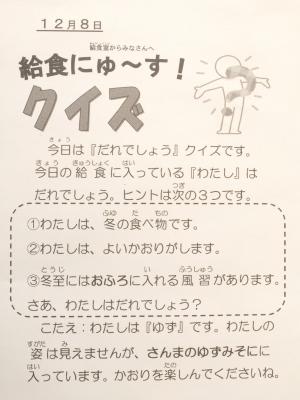 12月8日
給食室からみなさんへ
給食にゅ〜す！
クイズ
今日は『だれでしょう』クイズです。
今日の給食に入っている『わたし』は
だれでしょう。ヒントは次の３つです。
①わたしは、冬の食べ物です。
②わたしは、よいかおりがします。
③冬至にはおふろに入れる風習があります。
さあ、わたしはだれでしょう？
こたえ：わたしは『ゆず』です。わたしの
姿は見えませんが、さんまのゆずみそにに
入っています。かおりを楽しんでくださいね。